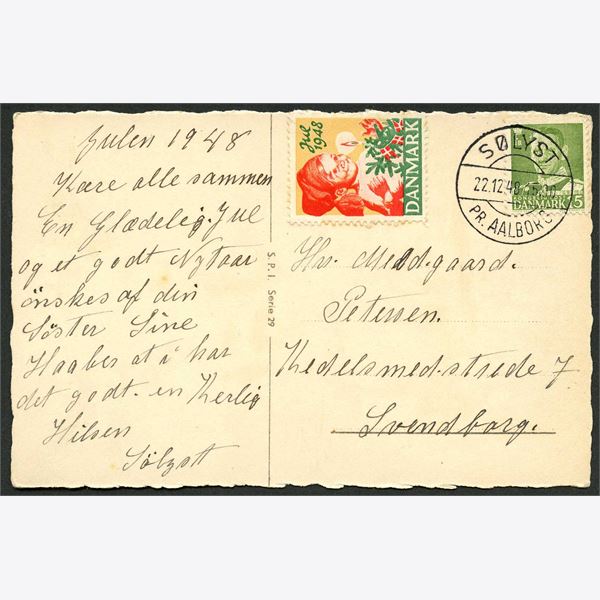 Julen 1948
Kære alle sammen
En Glædelig Jul
og et godt Nytaar
önskes af din
Söster Sine
Haaber at i har
det godt. en Kerlig
Hilsen
Sölyst
S. P. I. Serie 29
Jul 1948
DANMARK
SØLYST
22.12.48
PR. AALBORG
DANMARK 15
Hr. Meldgaard.
Petersen.
Kedelsmed-strede 7
Svendborg.